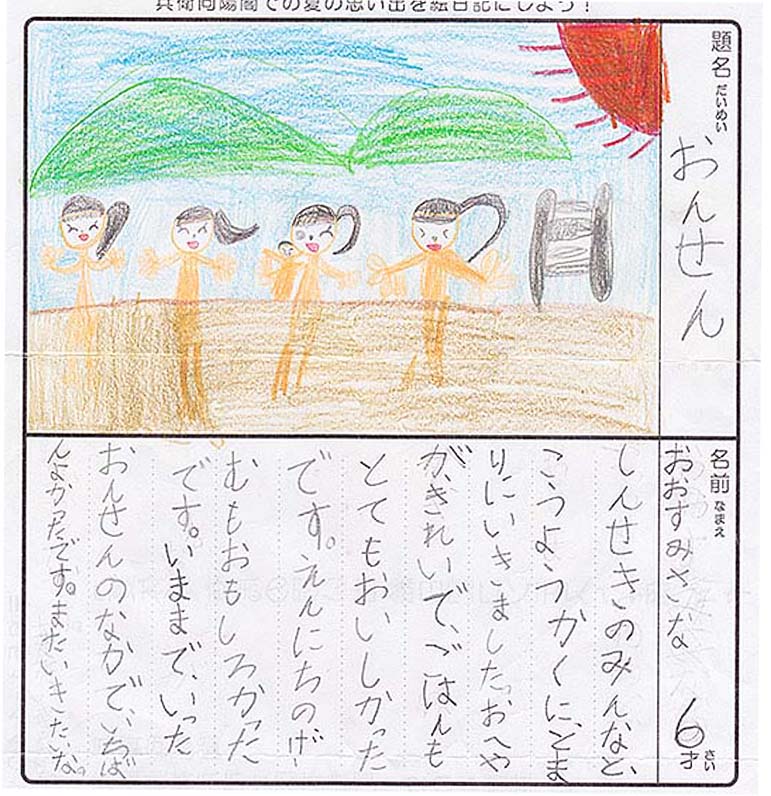 兵衛向陽閣での夏の思い出を絵日記にしよう!
題名 だいめい
おんせん
名前 なまえ
おおすみさな
6才 さい
しんせきのみんなと、
こうようかくに、とま
りにいきました。おへや
が、きれいで、ごはんも
とてもおいしかった
です。えんにちのげー
むもおもしろかった
です。いままで、いった
おんせんのなかで、いちば
んよかったです。またいきたいな。